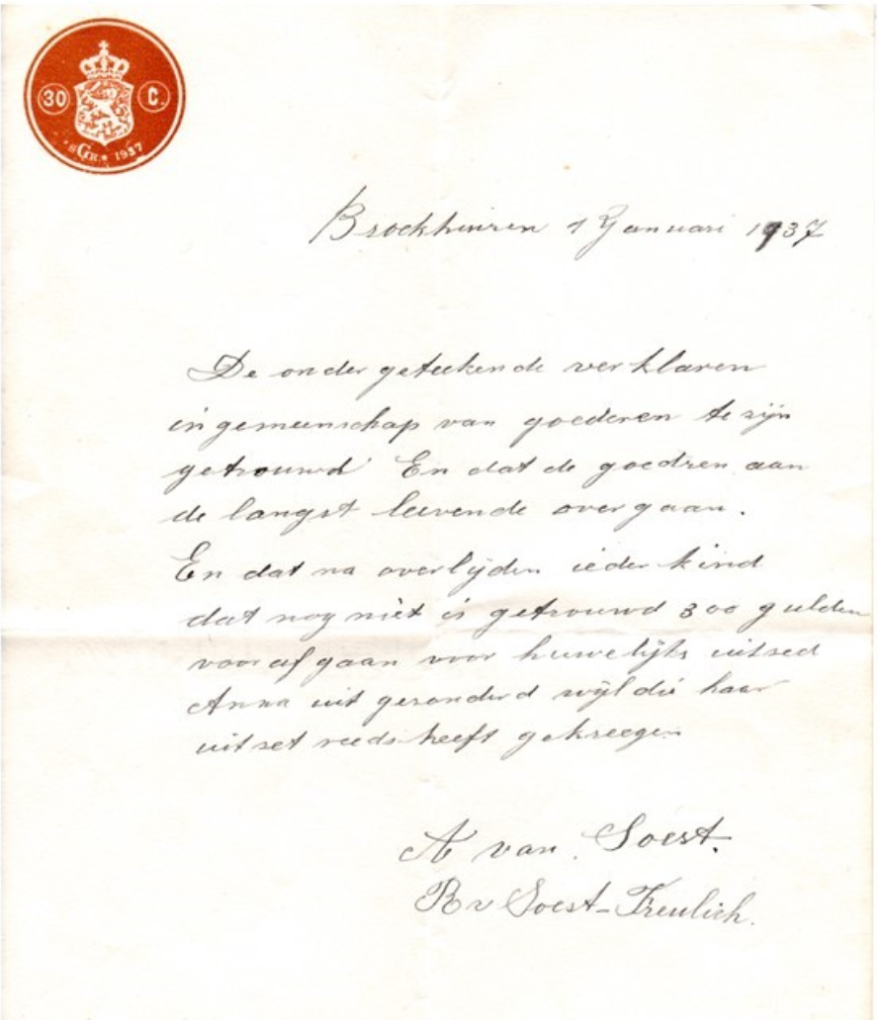 30 C.
'sGR. 1937
Broekhuizen 1 Januari 1937
De ondergeteekende verklaren
in gemeenschap van goederen te zijn
getrouwd En dat de goedren aan
de langst leevende over gaan.
En dat na overlijden ieder kind
dat nog niet is getrouwd 300 gulden
vooraf gaan voor huwelijks uitsed
Anna uit gezonderd wijl die haar
uitzet reeds heeft gekreegen
A van Soest.
R v Soest-Freulich.